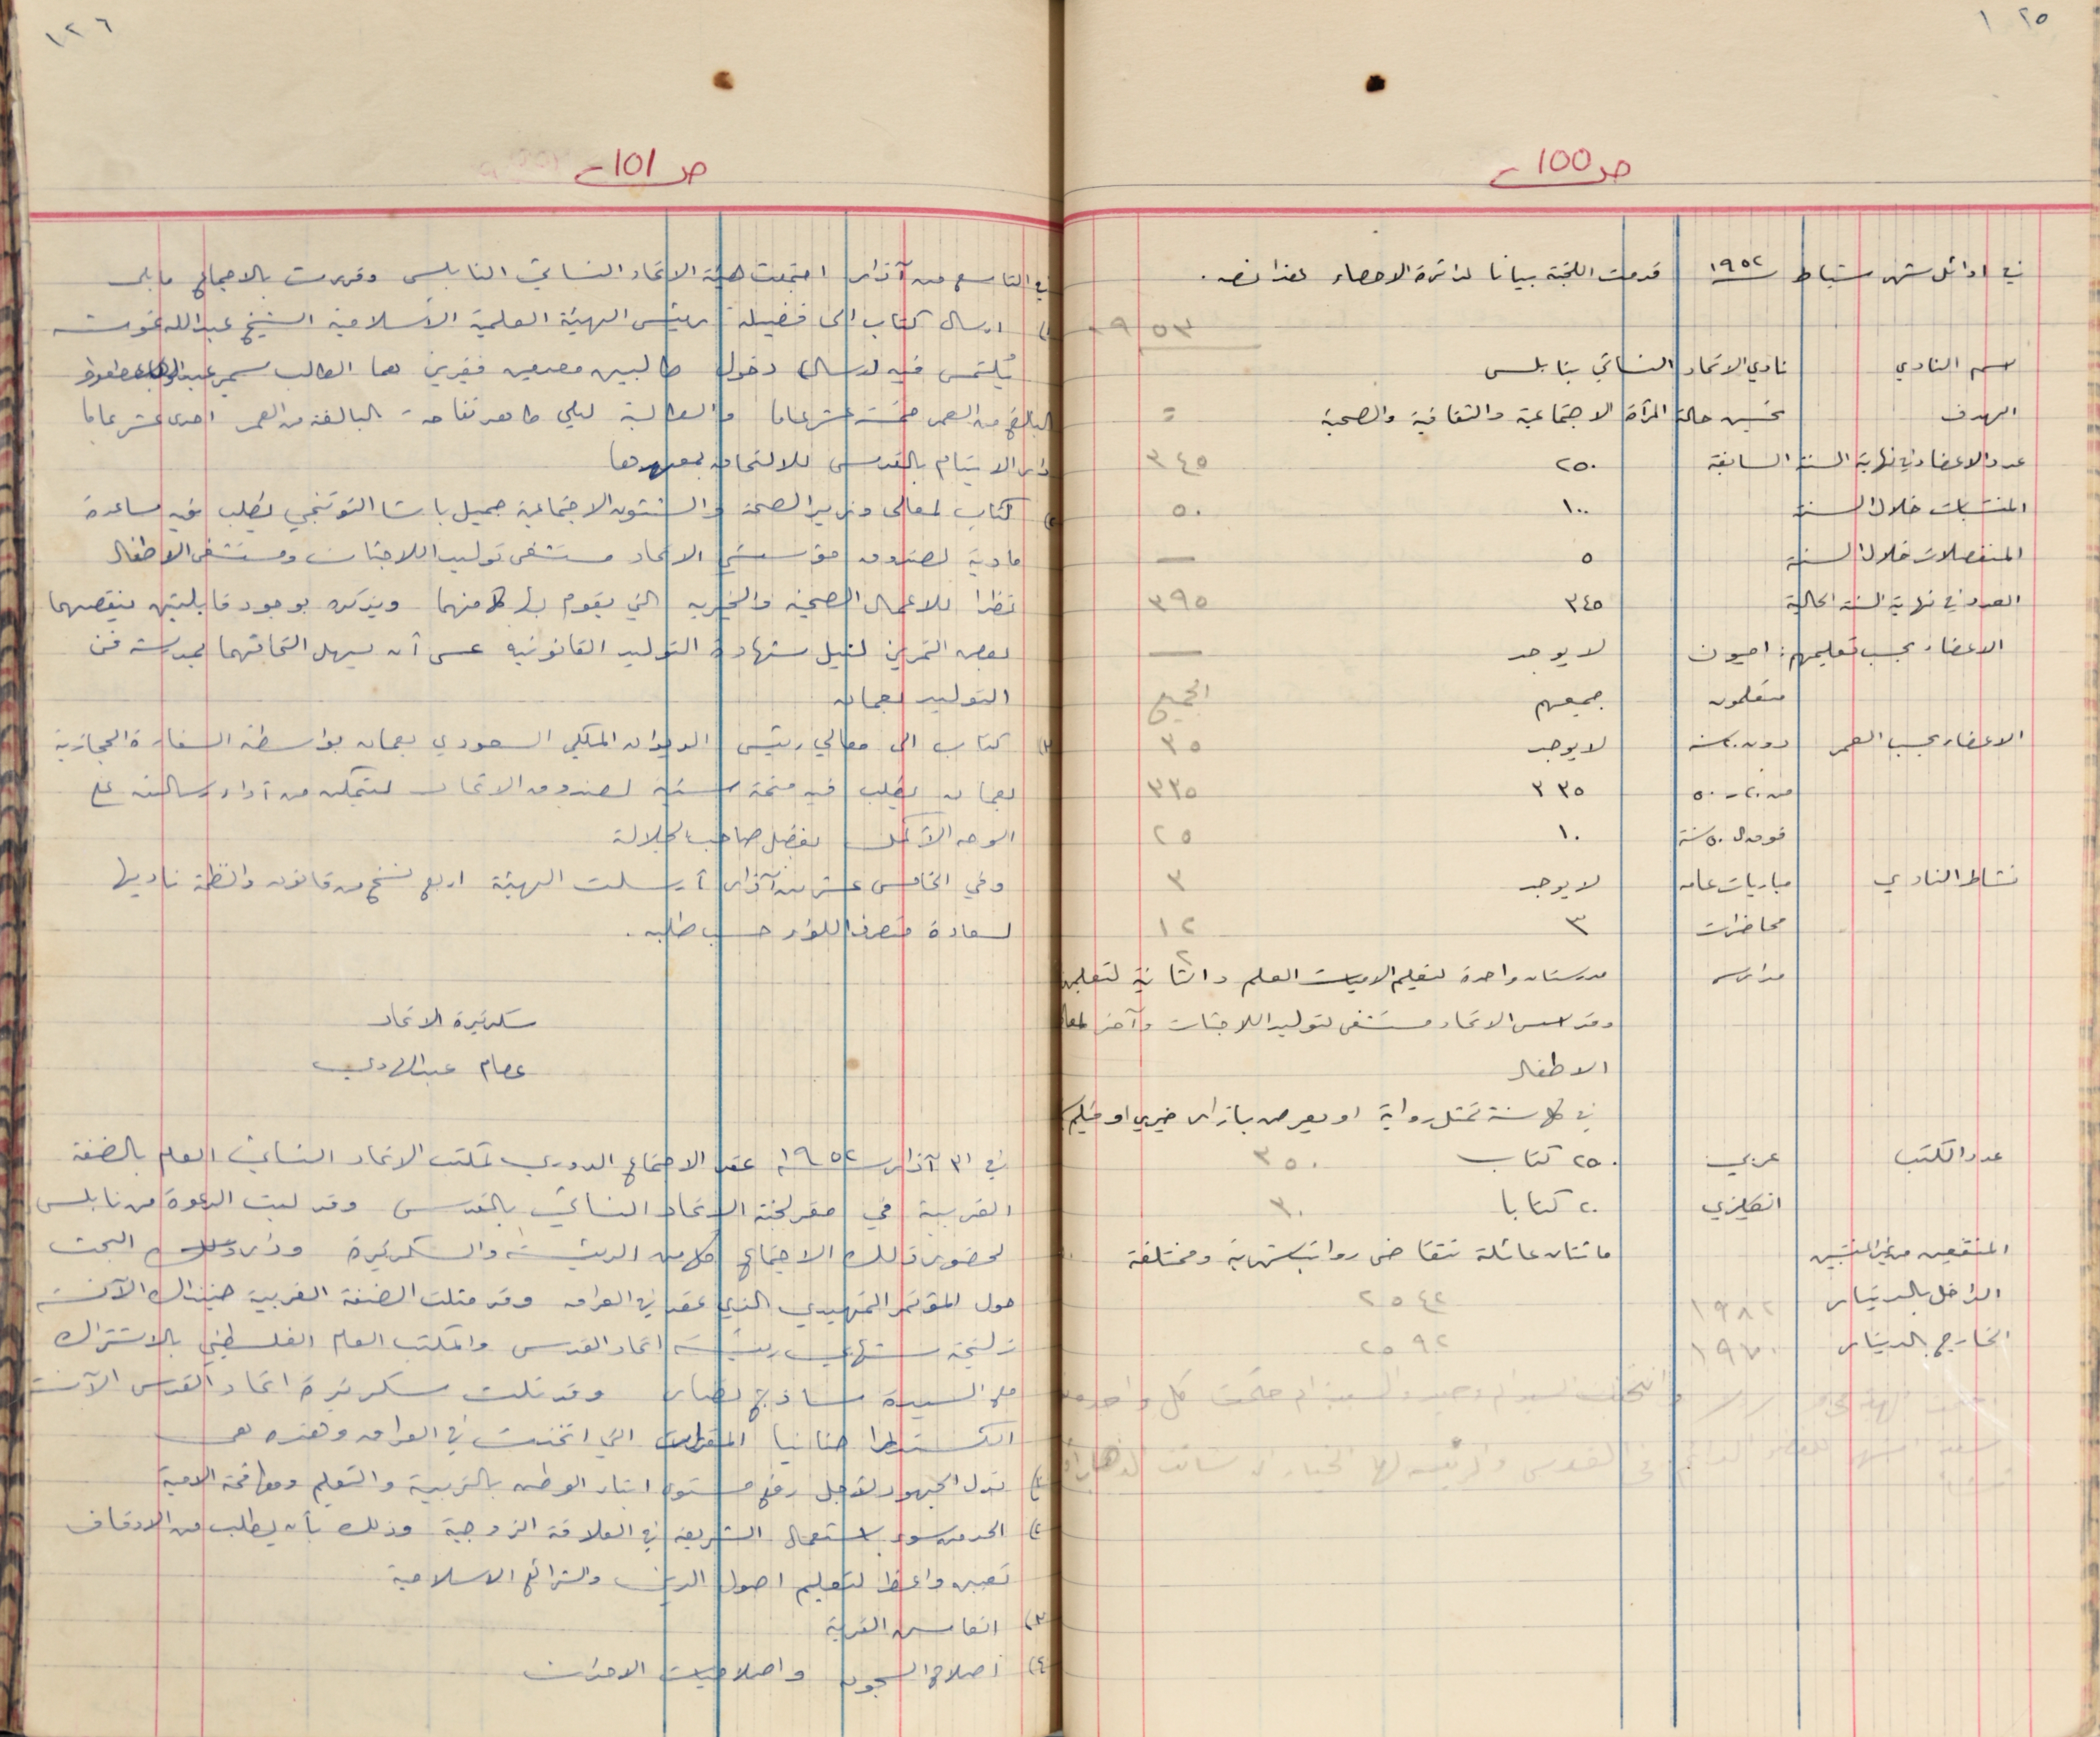 ١٢٥
ص 100
في اوائل شهر شباط سنة ١٩٥٢ قدمت اللجنة بيانا لدائرة الاحصاء هذا نصه .
٩٥٣
اسم النادي نادي الاتحاد النسائي بنابلس
الهدف تحسين حالة المرأة الاجتماعية والثقافية والصحية =
عدد الاعضاء في نهاية السنة السابقة ٢٥٠ ٣٤٥
المنتسبات خلال السنة ١٠٠ ٥٠
المنفصلات خلال السنة ٥ —
العدد في نهاية السنة الحالية ٣٤٥ ٣٩٥
الاعضاء بحسب تعليمهم : اميون لا يوجد —
متعلمون جميعهم الجميع
الاعضاء بحسب العمر دون ٢٠ سنة لا يوجد ٣٥
من ٢٠ - ٥٠ ٣٣٥ ٣٣٥
فوق ال ٥٠ سنة ١٠ ٢٥
نشاط النادي مباريات عامه لا يوجد ٣
محاضرات ٣ ١٢
مدارس مدرستان واحدة لتعليم الاميات العلم والثانية لتعليمهن ٢
وقد اسس الاتحاد مستشفى لتوليد اللاجئات وآخر لمعالجة
الاطفال
في كل سنة تمثل رواية او يعرض بازار خيري او فيلم
عدد الكتب عربي ٢٥٠ كتاب ٣٥٠
انكليزي ٢٠ كتابا ٣٠
المنتفعين من غير المنتسبين مائتان عائلة تتقاضى رواتب شهرية ومختلفة
الداخل بالدينار ١٩٨٢ ٢٥٤٢
الخارج بالدينار ١٩٧٠ ٢٥٩٢
١٢٦
ص 101
في التاسع من آذار اجتمعت هيئة الاتحاد النسائي النابلسي وقررت بالاجماع ما يلي
١) ارسال كتاب الى فضيلة رئيس الهيئة العلمية الاسلامية الشيخ عبدالله غوشه
يُلتمس فيه دخول طالبين معدمين فقيرين هما الطالب سمير
البالغ من العمر خمسة عشر عاما والطالبة ليلى تفاحة البالغة من العمر احدى عشر عاما
دار الايتام بالقدس للالتحاق بمعهدها
٢) كتاب لمعالي وزير الصحة والشئون الاجتماعية جميل باشا التوتنجي يطلب فيه مساعدة
مادية لصندوق مؤسستي الاتحاد مستشفى توليد اللاجئات ومستشفى الاطفال
نظرا للاعمال الصحية والخيرية التي يقوم بها كل منهما ويذكره بوجود قابلتين ينقصهما
بعض التمرين لنيل شهادة التوليد القانونيه عسى أن يسهل التحاقهما بمدرسة فن
التوليد بعمان
٣) كتاب الى معالي رئيس الديوان الملكي السعودي بعمان بواسطة السفارة الحجازية
بعمان يطلب فيه منحة سنية لصندوق الاتحاد ليتمكن من أداء رسالته على
الوجه الأكمل بفضل صاحب الجلالة
وفي الخامس عشر من آذار أرسلت الهيئة اربع نسخ من قانون وانظمة ناديها
لسعادة متصرف اللواء حسب طلبه .
سكرتيرة الاتحاد
عصام عبدالهادي
في ٣١ آذار سنة ١٩٥٢ عقد الاجتماع الدوري لمكتب الاتحاد النسائي العام بالضفة
الغربية في مقر لجنة الاتحاد النسائي بالقدس وقد لبت الدعوة من نابلس
لحضور ذلك الاجتماع كل من الرئيسة والسكرتيرة ودار البحث
حول المؤتمر التمهيدي الذي عقد في العراق وقد مثلت الضفة الغربية حينذاك الآنسة
زليخة شهابي رئيسة اتحاد القدس والمكتب العام الفلسطيني بالاشتراك
مع السيدة ساذج نصار وقد تلت سكرتيرة اتحاد القدس الآنسة
الكسندرا حنانيا المقررات التي اتخذت في العراق وهذه هي
١) بذل الجهود لاجل رفع مستوى ابناء الوطن بالتربية والتعليم ومكافحة الامية
٢) الحد من سوء استعمال الشريعة في العلاقة الزوجية وذلك بأن يطلب من الاوقاف
تعيين واعظا لتعليم اصول الدين والشرائع الاسلامية
٣) انعاش القرية
٤) اصلاح السجون واصلاحيات الاحداث